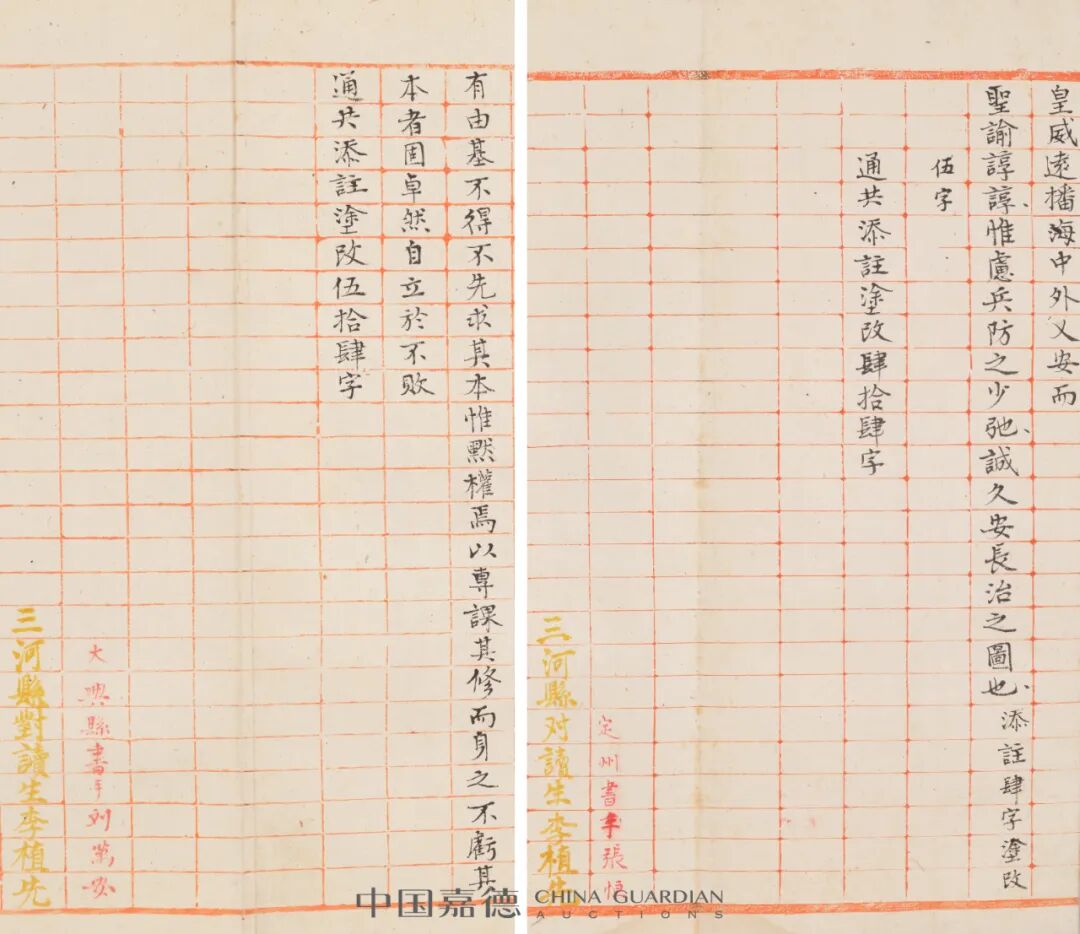 皇威遠播海中外乂安而
聖諭諄諄惟慮兵防之少弛誠久安長治之圖也添註肆字塗改
伍字
通共添註塗改肆拾肆字
定州書手張
三河縣对讀生李植先
有由基不得不先求其本惟黙權焉以專課其修而身之不虧其
本者固卓然自立於不敗
通共添註塗改伍拾肆字
大興縣書手刘萬
三河縣對讀生李植先
中国嘉德 CHINA GUARDIAN
AUCTIONS